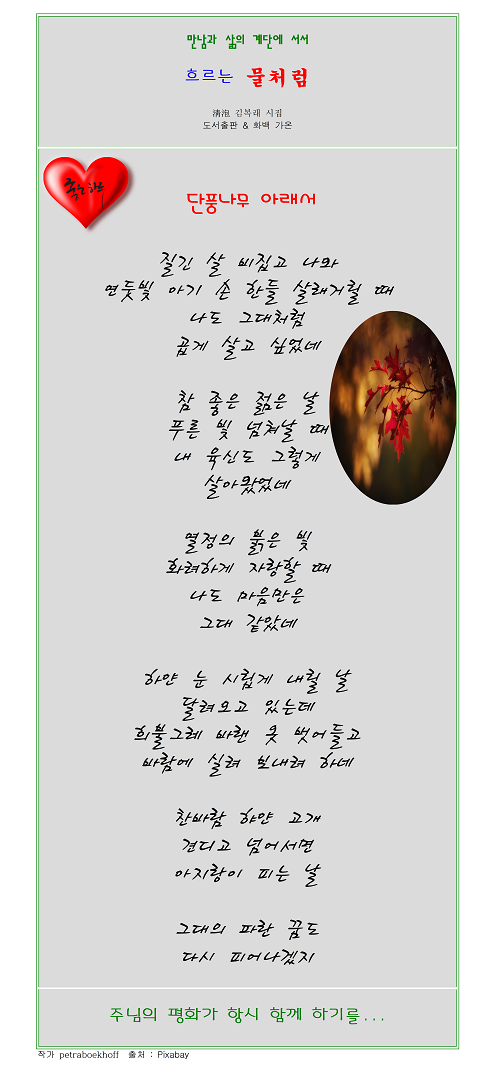 만남과 삶의 계단에 서서
흐르는 물처럼
淸泡 김복래 시집
도서출판 & 화백 가온
축노환
단풍나무 아래서
질긴 살 비집고 나와
연둣빛 아기 손 한들 살래거릴 때
나도 그대처럼
곱게 살고 싶었네
참 좋은 젊은 날
푸른 빛 넘쳐날 때
내 육신도 그렇게
살아왔었네
열정의 붉은 빛
화려하게 자랑할 때
나도 마음만은
그대 같았네
하얀 눈 시럽게 내릴 날
달려오고 있는데
희불그레 바랜 옷 벗어들고
바람에 실려 보내려 하네
찬바람 하얀 고개
견디고 넘어서면
아지랑이 피는 날
그대의 파란 꿈도
다시 피어나겠지
주님의 평화가 항시 함께 하기를...
작가 petraboekhoff 출처 : Pixabay